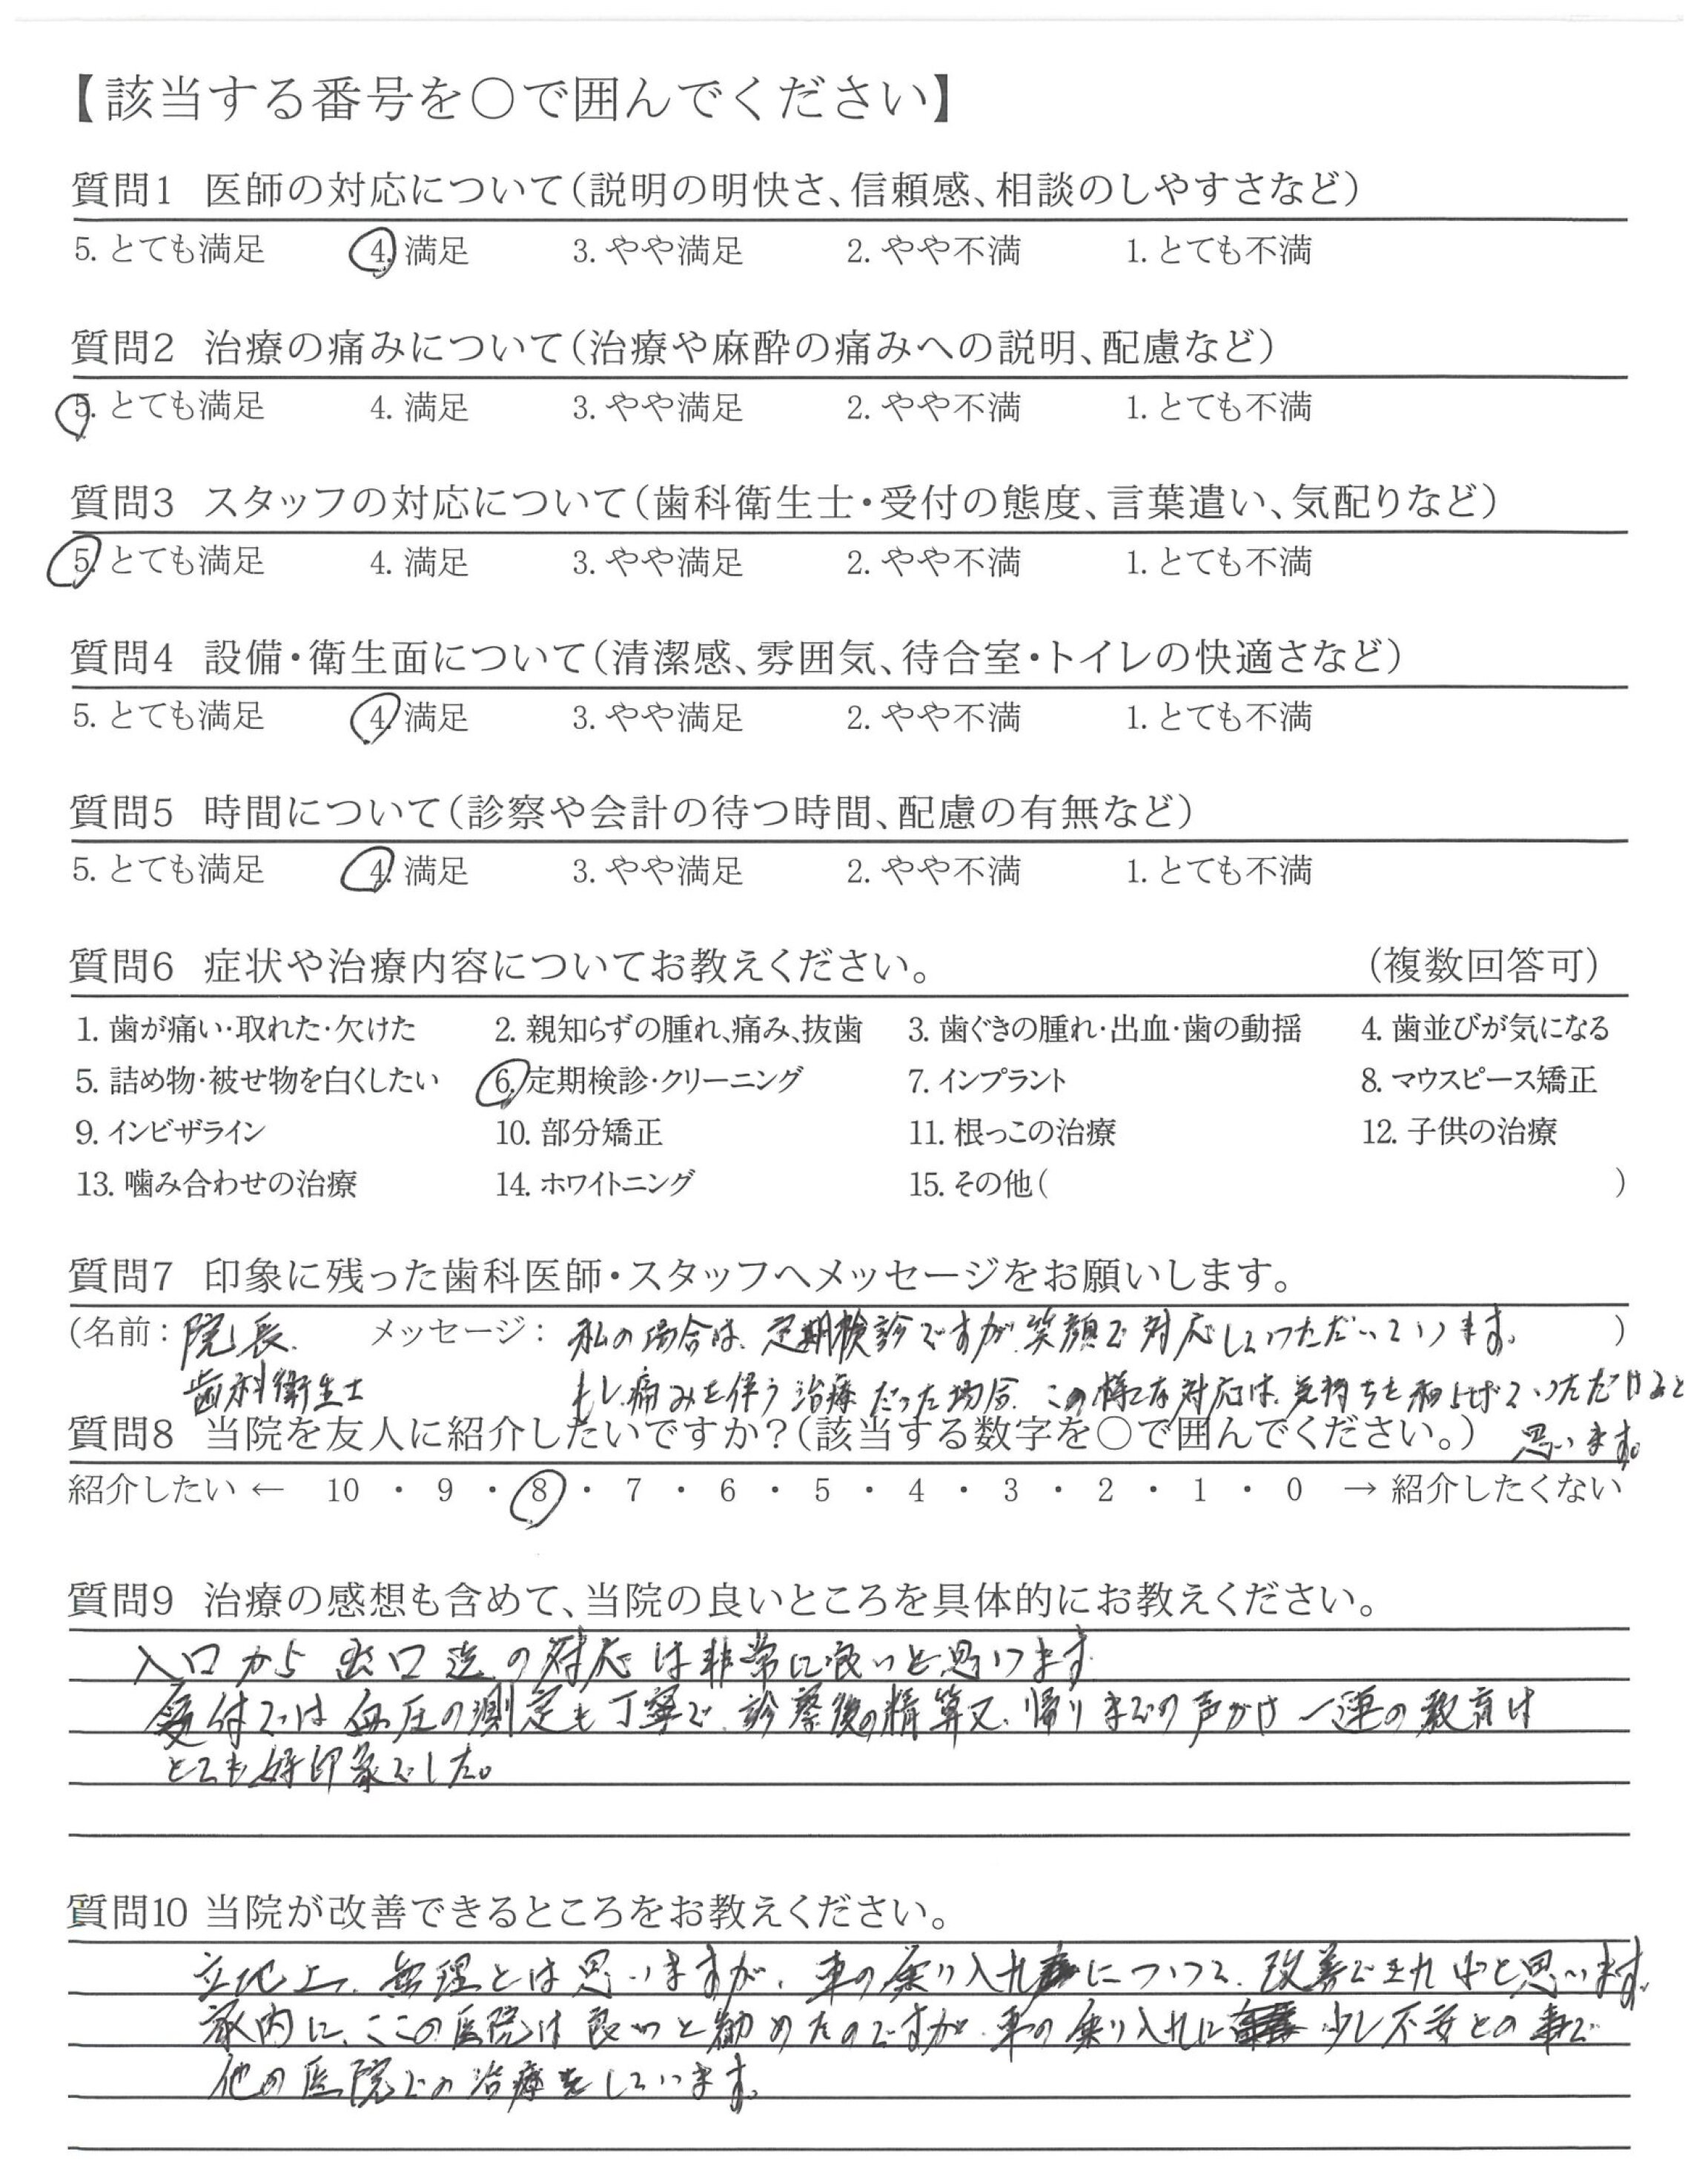 【該当する番号を○で囲んでください】
質問1 医師の対応について(説明の明快さ、信頼感、相談のしやすさなど)
5. とても満足 4. 満足 3. やや満足 2. やや不満 1. とても不満
質問2 治療の痛みについて(治療や麻酔の痛みへの説明、配慮など)
5. とても満足 4. 満足 3. やや満足 2. やや不満 1. とても不満
質問3 スタッフの対応について(歯科衛生士・受付の態度、言葉遣い、気配りなど)
5. とても満足 4. 満足 3. やや満足 2. やや不満 1. とても不満
質問4 設備・衛生面について(清潔感、雰囲気、待合室・トイレの快適さなど)
5. とても満足 4. 満足 3. やや満足 2. やや不満 1. とても不満
質問5 時間について(診察や会計の待つ時間、配慮の有無など)
5. とても満足 4. 満足 3. やや満足 2. やや不満 1. とても不満
質問6 症状や治療内容についてお教えください。 (複数回答可)
1. 歯が痛い・取れた・欠けた 2. 親知らずの腫れ、痛み、抜歯 3. 歯ぐきの腫れ・出血・歯の動揺 4. 歯並びが気になる
5. 詰め物・被せ物を白くしたい 6. 定期検診・クリーニング 7. インプラント 8. マウスピース矯正
9. インビザライン 10. 部分矯正 11. 根っこの治療 12. 子供の治療
13. 噛み合わせの治療 14. ホワイトニング 15. その他( )
質問7 印象に残った歯科医師・スタッフへメッセージをお願いします。
(名前: 院長 メッセージ: 私の場合は、定期検診ですが、笑顔で対応していただいています。 )
歯科衛生士 もし痛みを伴う治療だった場合、この様な対応は、気持ちを和らげていただけると
質問8 当院を友人に紹介したいですか?(該当する数字を○で囲んでください。) 思います。
紹介したい ← 10 ・ 9 ・ 8 ・ 7 ・ 6 ・ 5 ・ 4 ・ 3 ・ 2 ・ 1 ・ 0 → 紹介したくない
質問9 治療の感想も含めて、当院の良いところを具体的にお教えください。
入口から出口迄の対応は非常に良いと思います
受付では血圧の測定も丁寧で、診察後の精算又、帰りまでの声がけ一連の教育は
とても好印象でした。
質問10 当院が改善できるところをお教えください。
立地上、無理とは思いますが、車の乗り入れについて、改善できればと思います。
家内に、ここの医院は良いと勧めたのですが、車の乗り入れに少し不安との事で
他の医院での治療をしています。